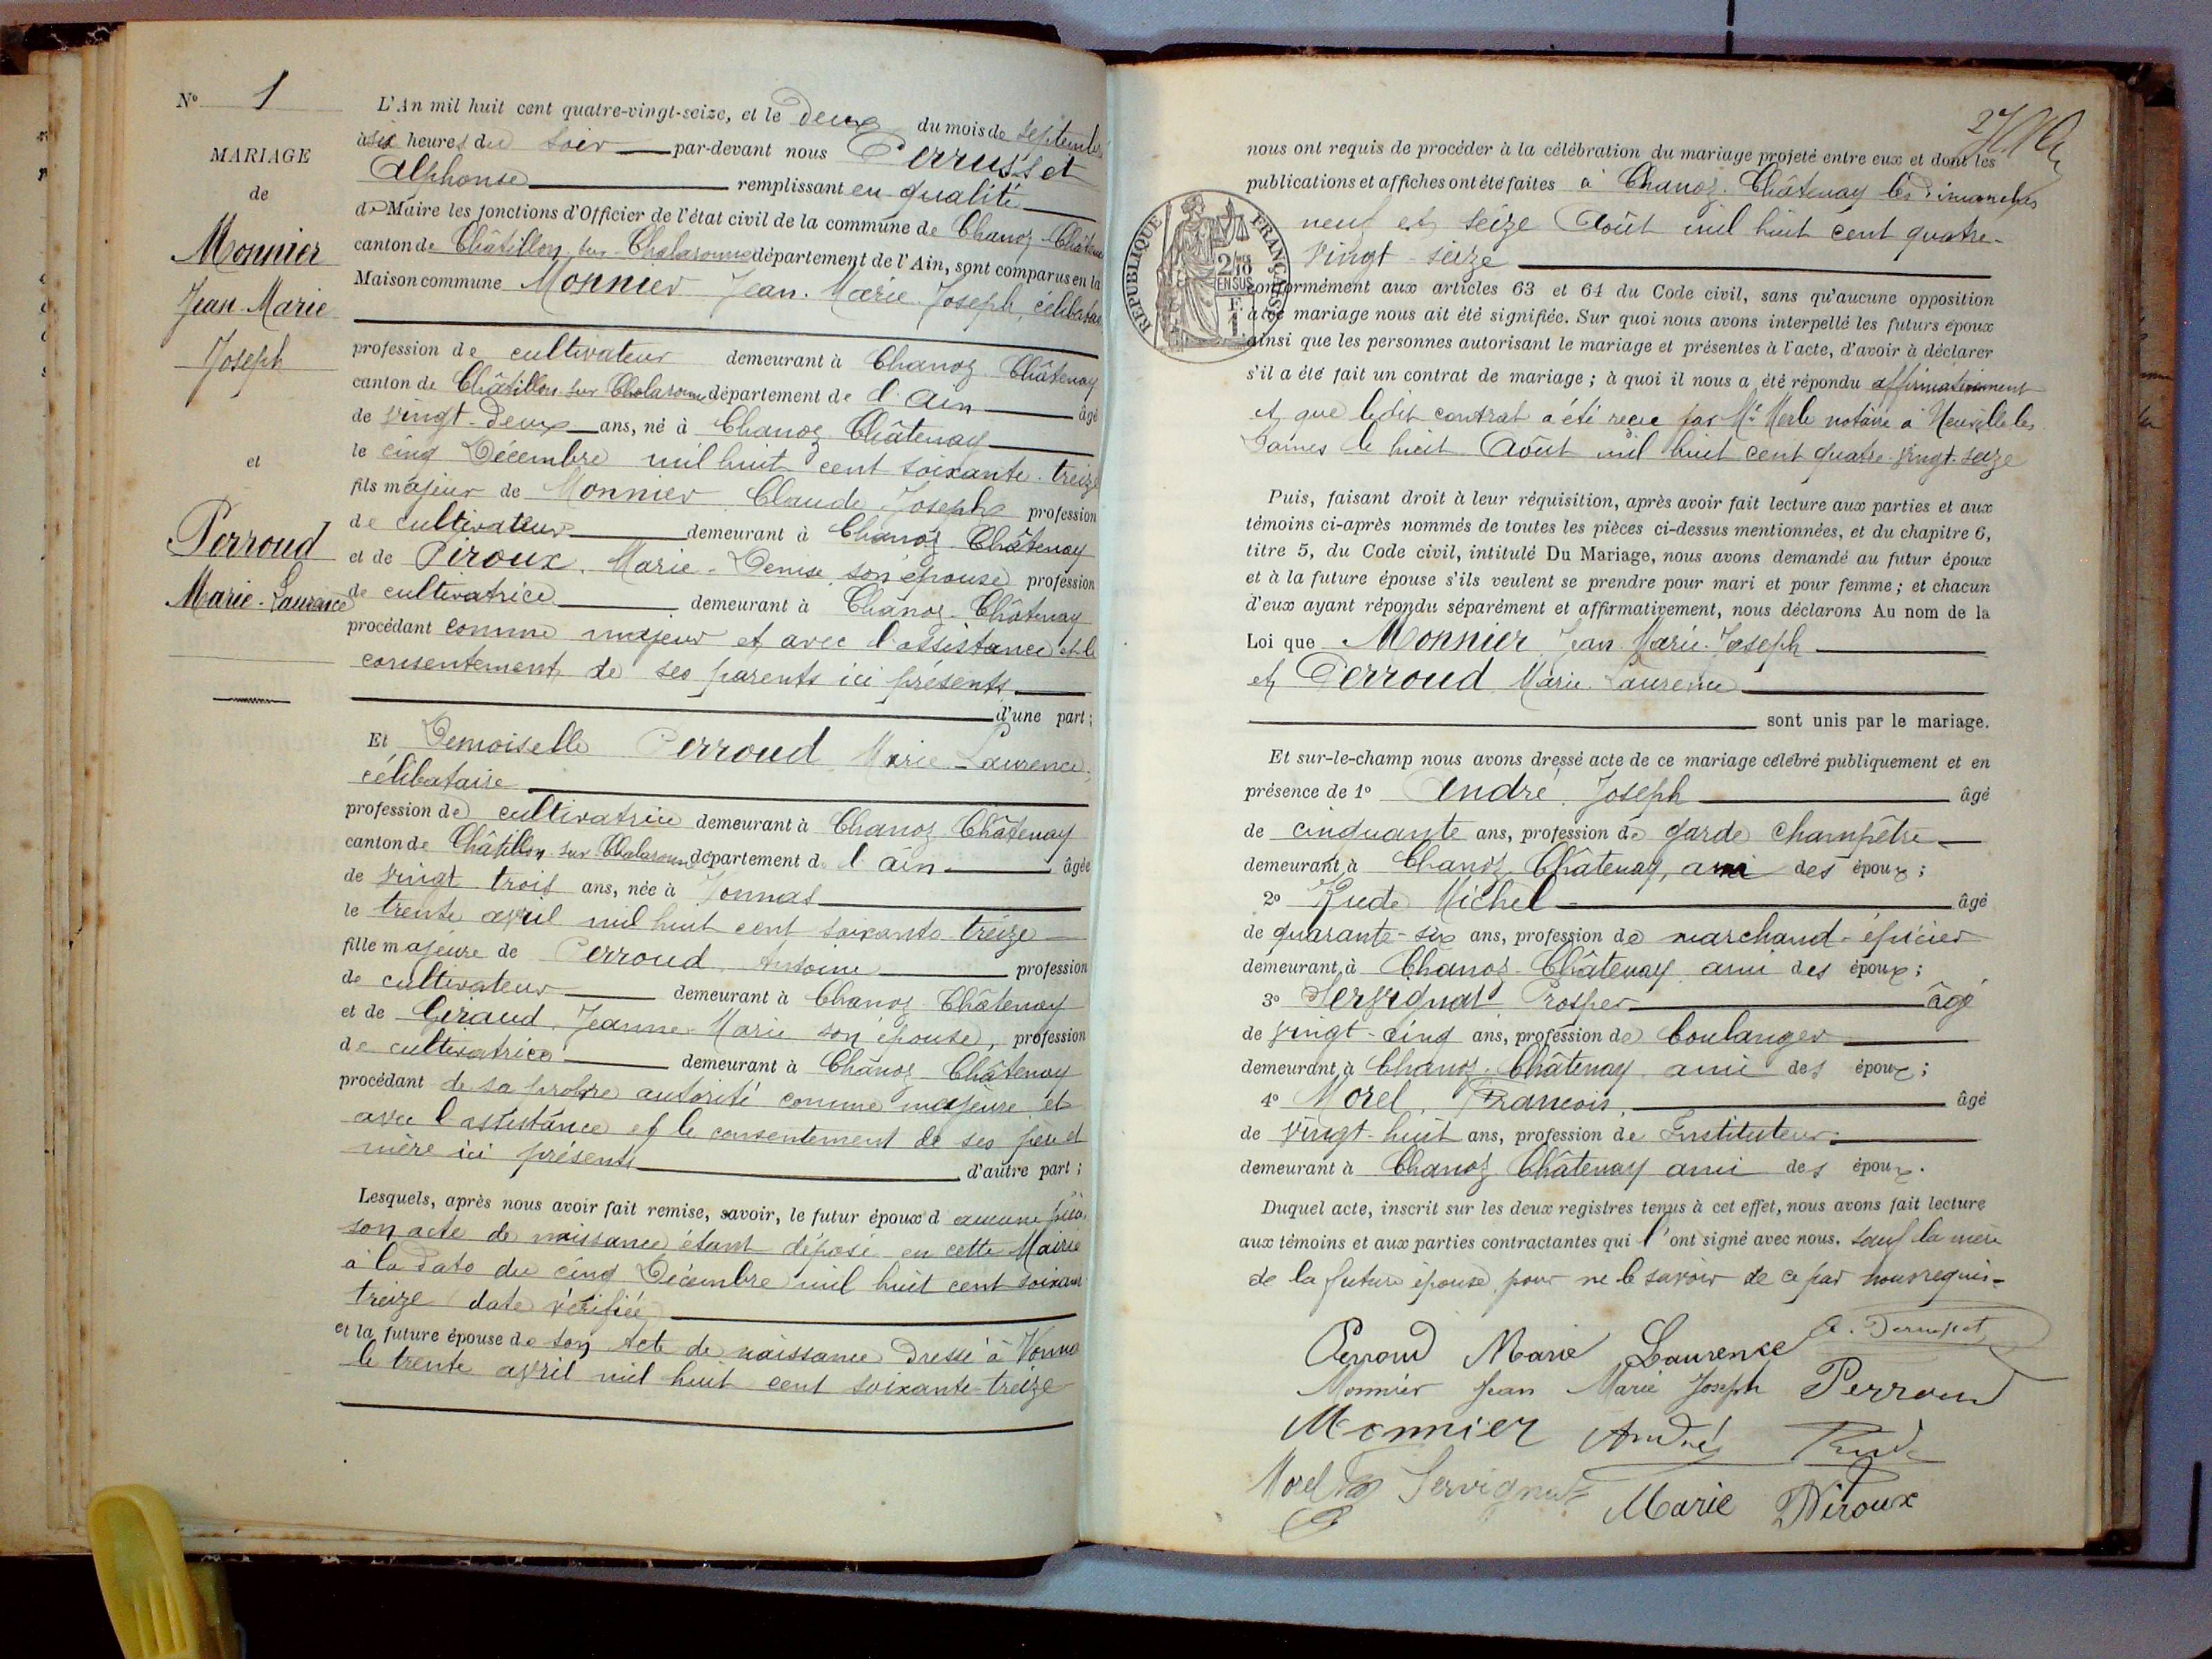 N° 1
MARIAGE
de
Monnier
Jean-Marie
Joseph
et
Perroud
Marie-Laurence
L'An mil huit cent quatre-vingt-seize, et le deux du mois de septembre
à six heures du soir par-devant nous Perrusset
Alphonse remplissant en qualité
de Maire les fonctions d'Officier de l'état civil de la commune de Chanoz-Châtenay
canton de Châtillon sur Chalaronne département de l'Ain, sont comparus en la
Maison commune Monnier Jean-Marie Joseph, célibataire
profession de cultivateur demeurant à Chanoz-Châtenay
canton de Châtillon sur Chalaronne département de l'Ain âgé
de vingt-deux ans, né à Chanoz-Châtenay
le cinq Décembre mil huit cent soixante-treize
fils majeur de Monnier Claude Joseph profession
de cultivateur demeurant à Chanoz-Châtenay
et de Piroux, Marie-Denise son épouse profession
de cultivatrice demeurant à Chanoz-Châtenay
procédant comme majeur et avec l'assistance et le
consentement de ses parents ici présents
d'une part;
Et Demoiselle Perroud Marie-Laurence,
célibataire
profession de cultivatrice demeurant à Chanoz-Châtenay
canton de Châtillon sur Chalaronne département de l'Ain âgée
de vingt trois ans, née à Vonnas
le trente avril mil huit cent soixante-treize
fille majeure de Perroud Antoine profession
de cultivateur demeurant à Chanoz-Châtenay
et de Giraud, Jeanne-Marie son épouse, profession
de cultivatrice demeurant à Chanoz-Châtenay
procédant de sa propre autorité comme majeure et
avec l'assistance et le consentement de ses père et
mère ici présents d'autre part;
Lesquels, après nous avoir fait remise, savoir, le futur époux d'aucune pièce
son acte de naissance étant déposé en cette Mairie
à la date du cinq Décembre mil huit cent soixante
treize date vérifiée
et la future épouse de son acte de naissance dressé à Vonnas
le trente avril mil huit cent soixante-treize
2
nous ont requis de procéder à la célébration du mariage projeté entre eux et dont les
publications et affiches ont été faites à Chanoz-Châtenay les dimanches
neuf et seize Août mil huit cent quatre-
vingt-seize
RÉPUBLIQUE FRANÇAISE
2/10
EN SUS
F.
1.
conformément aux articles 63 et 64 du Code civil, sans qu'aucune opposition
à ce mariage nous ait été signifiée. Sur quoi nous avons interpellé les futurs époux
ainsi que les personnes autorisant le mariage et présentes à l'acte, d'avoir à déclarer
s'il a été fait un contrat de mariage; à quoi il nous a été répondu affirmativement
et que ledit contrat a été reçu par Me Merle notaire à Neuville les
Dames le huit Août mil huit cent quatre-vingt-seize
Puis, faisant droit à leur réquisition, après avoir fait lecture aux parties et aux
témoins ci-après nommés de toutes les pièces ci-dessus mentionnées, et du chapitre 6,
titre 5, du Code civil, intitulé Du Mariage, nous avons demandé au futur époux
et à la future épouse s'ils veulent se prendre pour mari et pour femme; et chacun
d'eux ayant répondu séparément et affirmativement, nous déclarons Au nom de la
Loi que Monnier Jean-Marie-Joseph
et Perroud Marie-Laurence
sont unis par le mariage.
Et sur-le-champ nous avons dressé acte de ce mariage célébré publiquement et en
présence de 1° André Joseph âgé
de cinquante ans, profession de garde champêtre
demeurant à Chanoz-Châtenay, ami des époux;
2° Rude Michel âgé
de quarante-six ans, profession de marchand-épicier
demeurant à Chanoz-Châtenay ami des époux;
3° Servignat Prosper âgé
de vingt-cinq ans, profession de boulanger
demeurant à Chanoz-Châtenay ami des époux;
4° Morel, François, âgé
de vingt-huit ans, profession de Instituteur
demeurant à Chanoz-Châtenay ami des époux.
Duquel acte, inscrit sur les deux registres tenus à cet effet, nous avons fait lecture
aux témoins et aux parties contractantes qui l'ont signé avec nous. sauf la mère
de la future épouse pour ne le savoir de ce par nous requis-
Perroud Marie Laurence A. Perrusset
Monnier Jean Marie Joseph Perroud
Monnier André Rude
Morel Servignat Marie Piroux